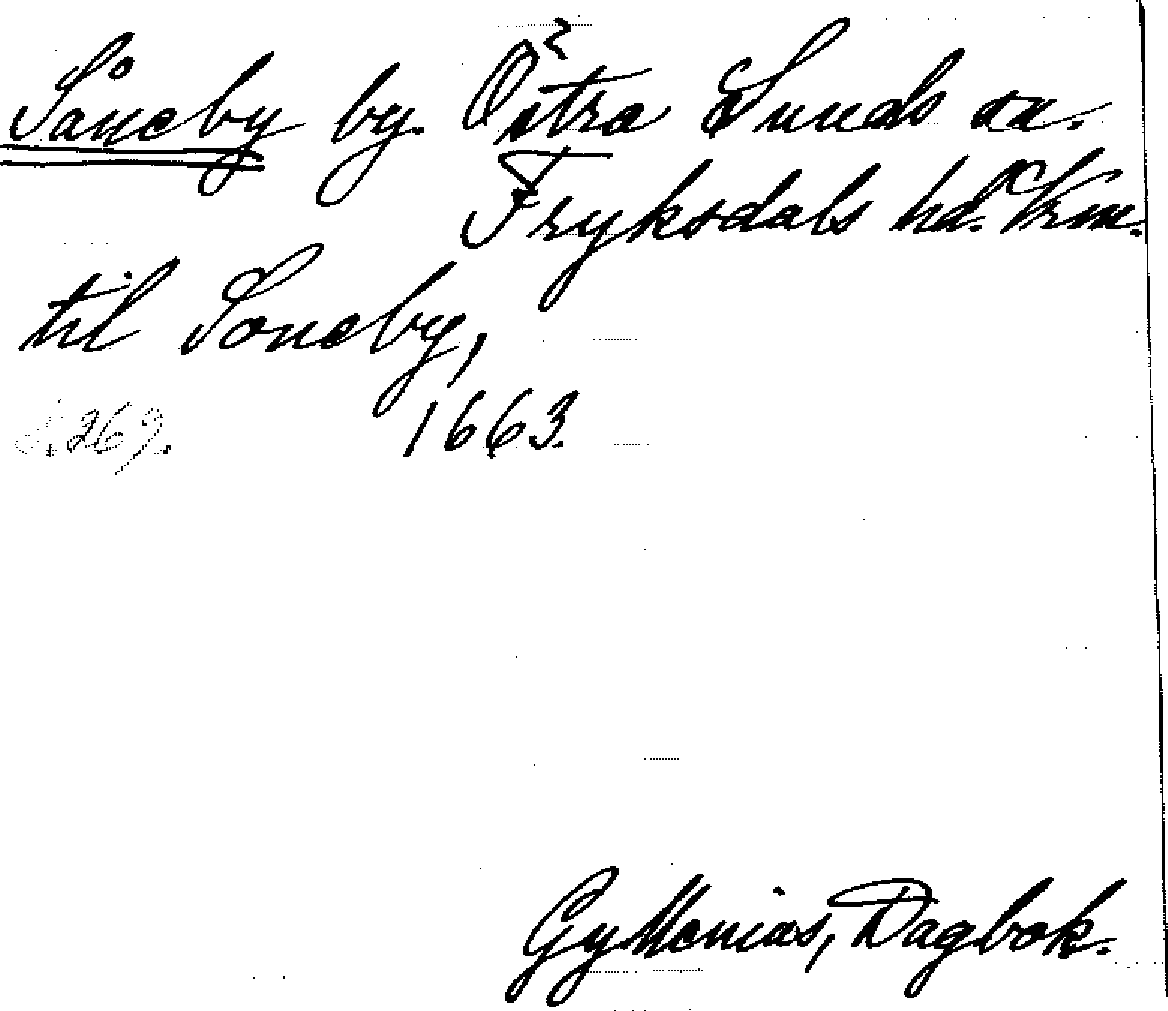 Såneby by. Östra Sunds sn.
Fryksdals hd. Vrm.
til Soneby,
s. 269. 1663.
Gyllenius, Dagbok.